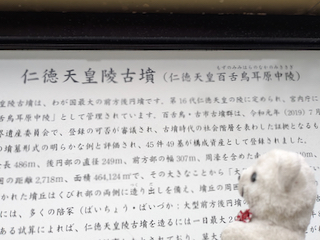 もずのみみはらのなかのみささぎ
仁徳天皇陵古墳（仁徳天皇百舌鳥耳原中陵）
皇陵古墳は、わが国最大の前方後円墳です。第16代仁徳天皇の陵に定められ、宮内庁に
」として管理されています。百舌鳥・古市古墳群は、令和元年(2019)7月
界遺産委員会で、登録の可否が審議され、古墳時代の社会階層を表わした証拠となるも
の墳墓形式の明らかな例と評価され、45件49基が構成資産として登録されました。
長486m、後円部の直径249m、前方部の幅307m、周濠を含めた
の距離2,718m、面積464,124㎡で、その大きさなどから「大
かれた墳丘はくびれ部の両側に造り出しを備え、墳丘の周囲
には、多くの陪冢（ばいちょう・ばいづか：大型前方後円墳の
ある試算によれば、仁徳天皇陵を造るには一日最大2